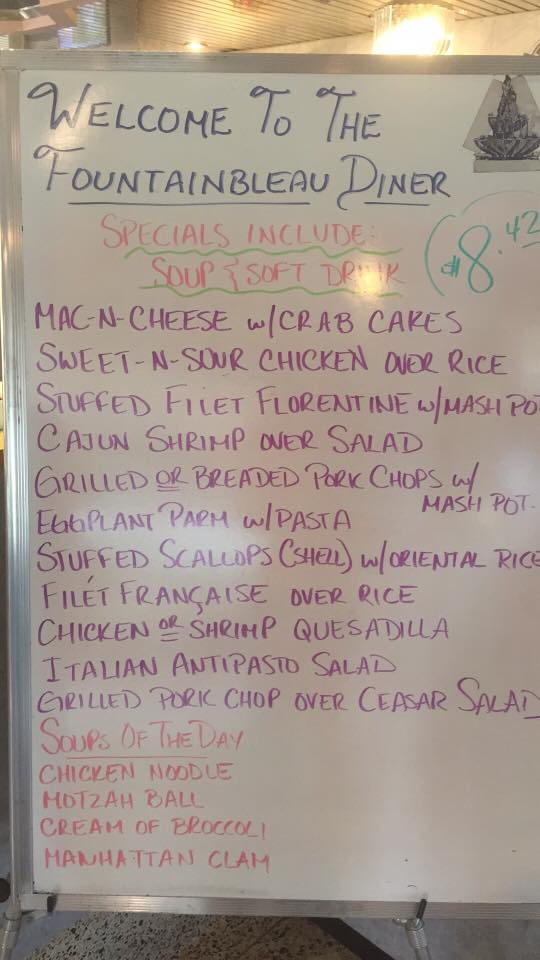 WELCOME TO THE
FOUNTAINBLEAU DINER
SPECIALS INCLUDE:
SOUP & SOFT DRINK
($8.42
MAC-N-CHEESE w/CRAB CAKES
SWEET-N-SOUR CHICKEN OVER RICE
STUFFED FILET FLORENTINE w/MASH POT
CAJUN SHRIMP OVER SALAD
GRILLED OR BREADED PORK CHOPS w/
MASH POT.
EGGPLANT PARM w/PASTA
STUFFED SCALLOPS (SHELL) w/ORIENTAL RICE
FILÉT FRANÇAISE OVER RICE
CHICKEN OR SHRIMP QUESADILLA
ITALIAN ANTIPASTO SALAD
GRILLED PORK CHOP OVER CEASAR SALAD
SOUPS OF THE DAY
CHICKEN NOODLE
MOTZAH BALL
CREAM OF BROCCOLI
MANHATTAN CLAM